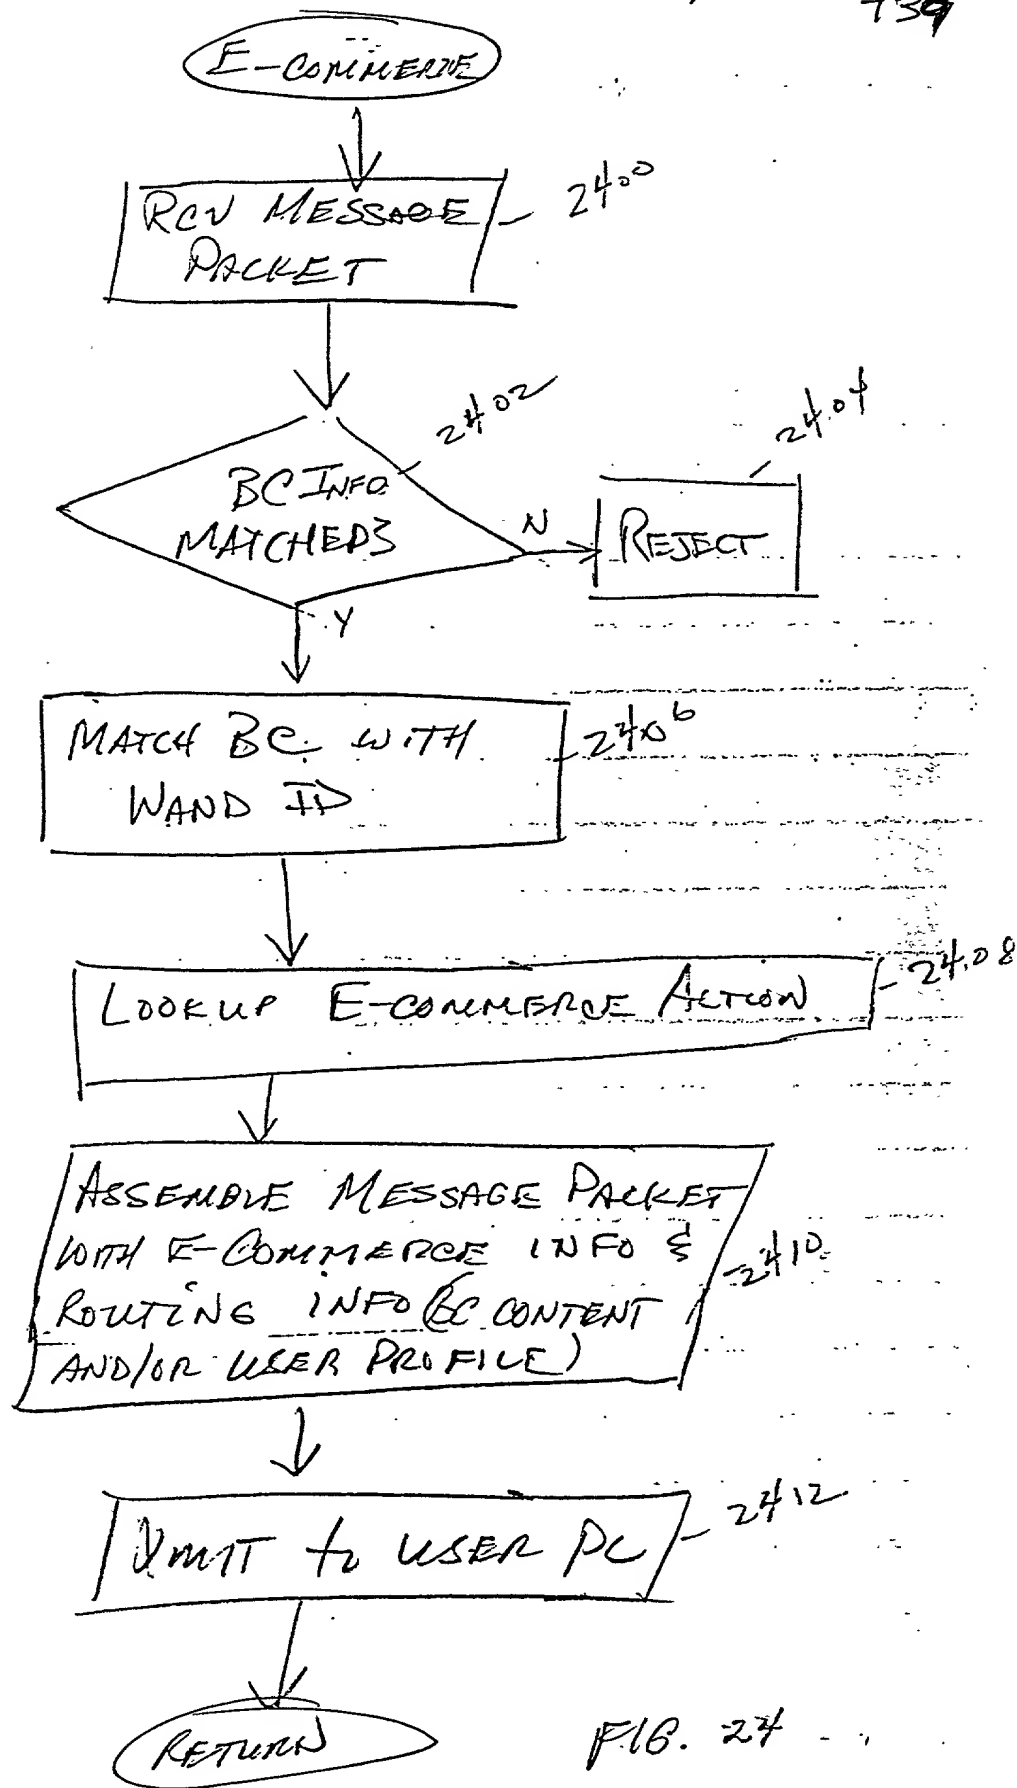 739
E-COMMERCE
RCV MESSAGE
PACKET
2400
2402
2404
BC INFO
MATCHED?
N
REJECT
Y
MATCH BC WITH
WAND ID
2406
LOOKUP E-COMMERCE ACTION
2408
ASSEMBLE MESSAGE PACKET
WITH E-COMMERCE INFO &
ROUTING INFO (BC CONTENT
AND/OR USER PROFILE)
2410
XMIT to USER PC
2412
RETURN
FIG. 24